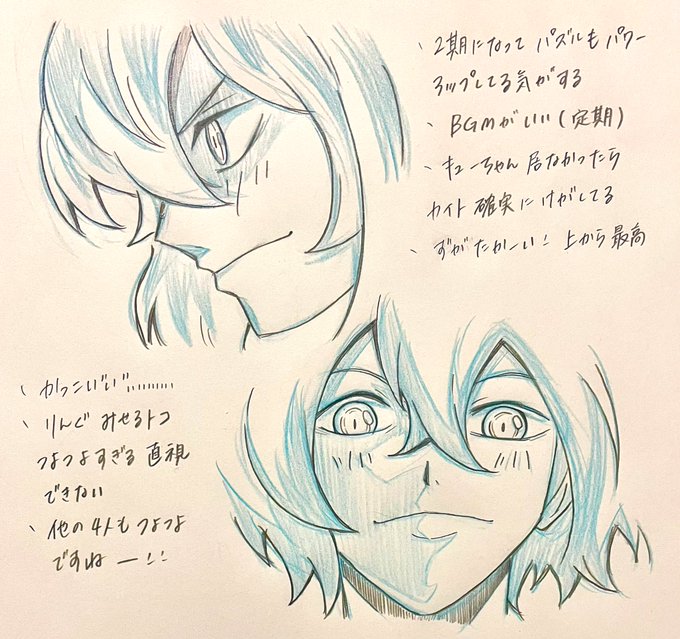 、2期になって パズルも パワー
アップしてる気がする
、BGMがいい(定期)
、キューちゃん 居なかったら
カイト 確実に けがしてる
、ずがたかーい! 上から 最高
、かっこいい゛い゛……
、りんぐ みせるトコ
つよつよすぎる 直視
できない
、他の 4人も つよつよ
ですね ー!!